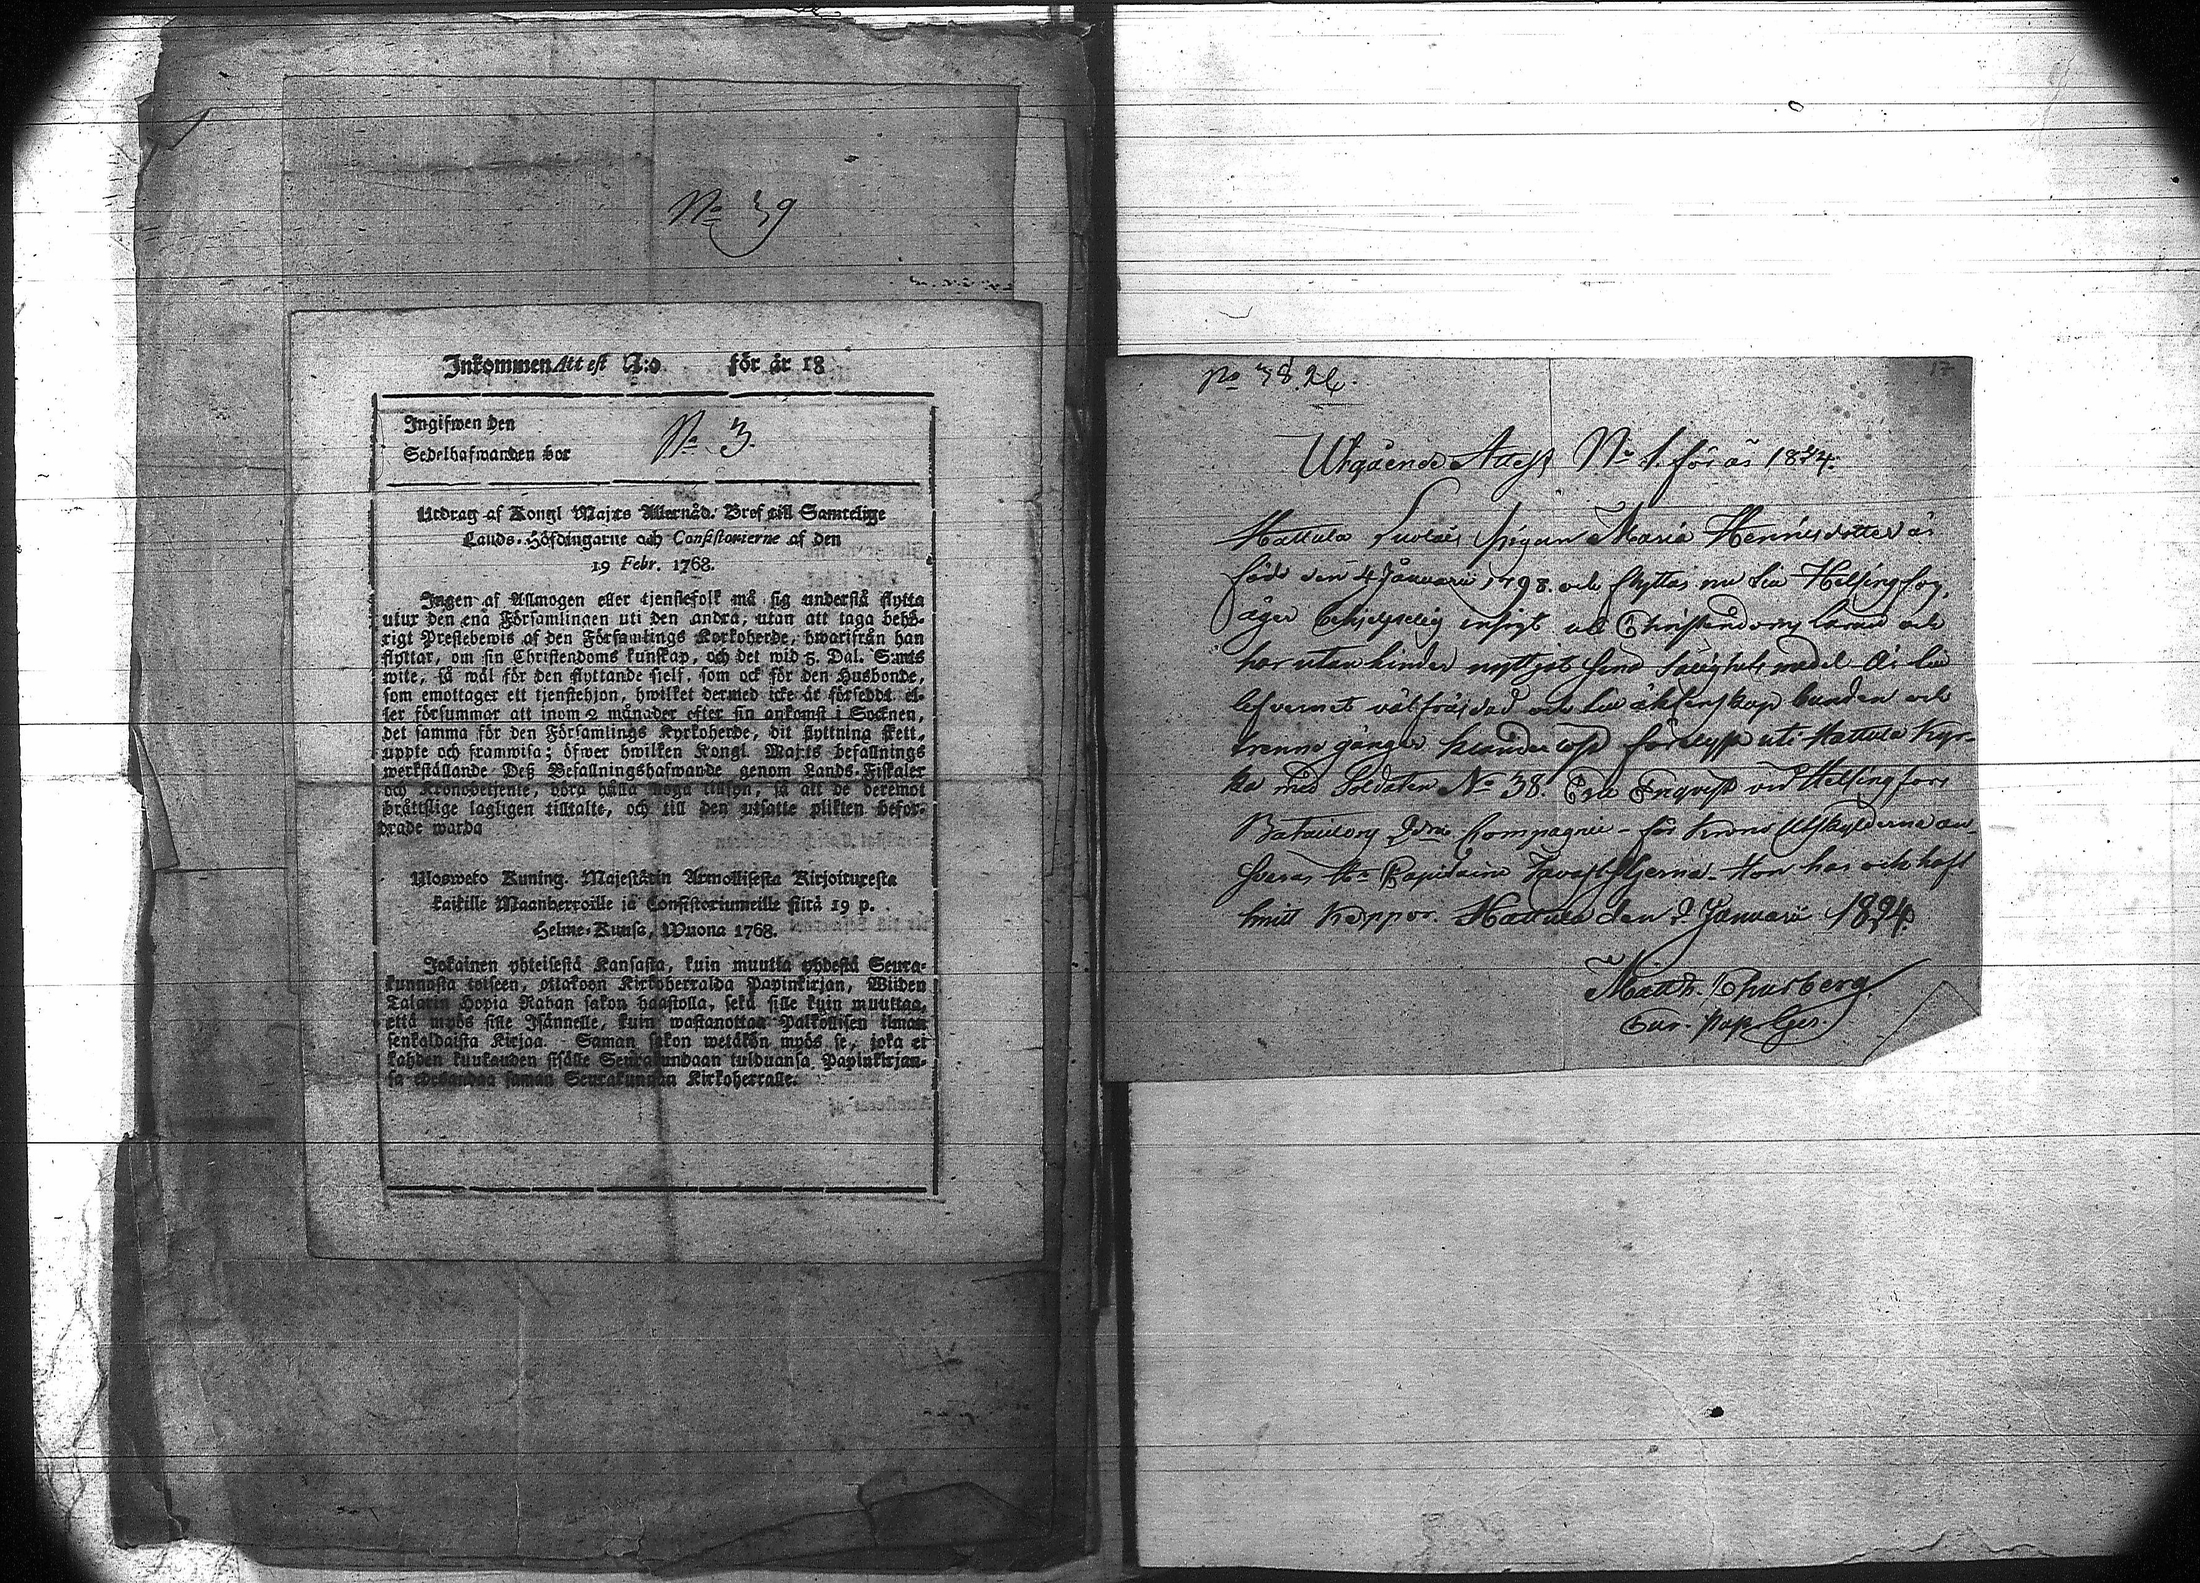 No 39
Inkommen Attest N:o för år 18
Ingifwen den
Sedelhafwanden bor
No 3.
Utdrag af Kongl Maj:ts Allernåd. Bref till Samtelige
Lands-Höfdingarne och Consistorierne af den
19 Febr. 1768.
Ingen af Allmogen eller tjenstefolk må sig understå flytta
utur den ena Församlingen uti den andra, utan att taga behö-
rigt Prestebewis af den Församlings Kyrkoherde, hwarifrån han
flyttar, om sin Christendoms kunskap, och det wid 5. Dal. S:mts
wite, så wäl för den flyttande sjelf, som ock för den Husbonde,
som emottager ett tjenstehjon, hwilket dermed icke är försedd: el-
ler försummar att inom 2 månader efter sin ankomst i Socknen,
det samma för den Församlings Kyrkoherde, dit flyttning skett,
uppte och framwisa; öfwer hwilken Kongl. Maj:ts befallnings
werkställande Deß Befallningshafwande genom Lands-Fiskaler
och Kronobetjente, böra hålla noga tillsyn, så att de deremot
brättslige lagligen tilltalte, och till den utsatte plikten befor-
drade warda
Ulosweto Kuning. Majestätin Armollisesta Kirjoituxesta
kaikille Maanherroille ja Consistoriumeille siitä 19 p.
Helme-Kuusa, Wuona 1768.
Jokainen yhteisestä Kansasta, kuin muutta yhdestä Seura-
kunnasta toiseen, ottakoon Kirkoherralda Papinkirjan, Wiiden
Talarin Hopia Rahan sakon haastolla, sekä sille kuin muuttaa,
että myös sille Isännelle, kuin wastanottaa Palkollisen ilman
senkaldaista Kirjaa. Saman sakon wetäkön myös se, joka ei
kahden kuukauden sisälle Seurakundaan tulduansa Papinkirjan-
sa edesandaa saman Seurakunnan Kirkoherralle.
No 38. 24.
17
Utgående Attest No 1. för år 1824.
Hattula Suotais pigan Maria Henricsdotter är
född den 4 Januarii 1798. och flyttar nu till Helsingfors,
äger behjelpelig insigt uti Christendoms läran och
har utan hinder nyttjat sina salighets medel. Är till
lefvernet välfräjdad och till äktenskap bunden och
trenne gånger klanderlöst förlyst uti Hattula Kyr-
ka med Soldaten No 38 Eric Enqvist vid Helsingfors
Bataillons 2dra Compagnie - för Krono Utskylderna an-
svarar Hr Capitaine Tavaststjerna. Hon har ock haft
smitt koppor. Hattula den 2 Januarii 1824.
Matth. Churberg
Cur. past. Ger.